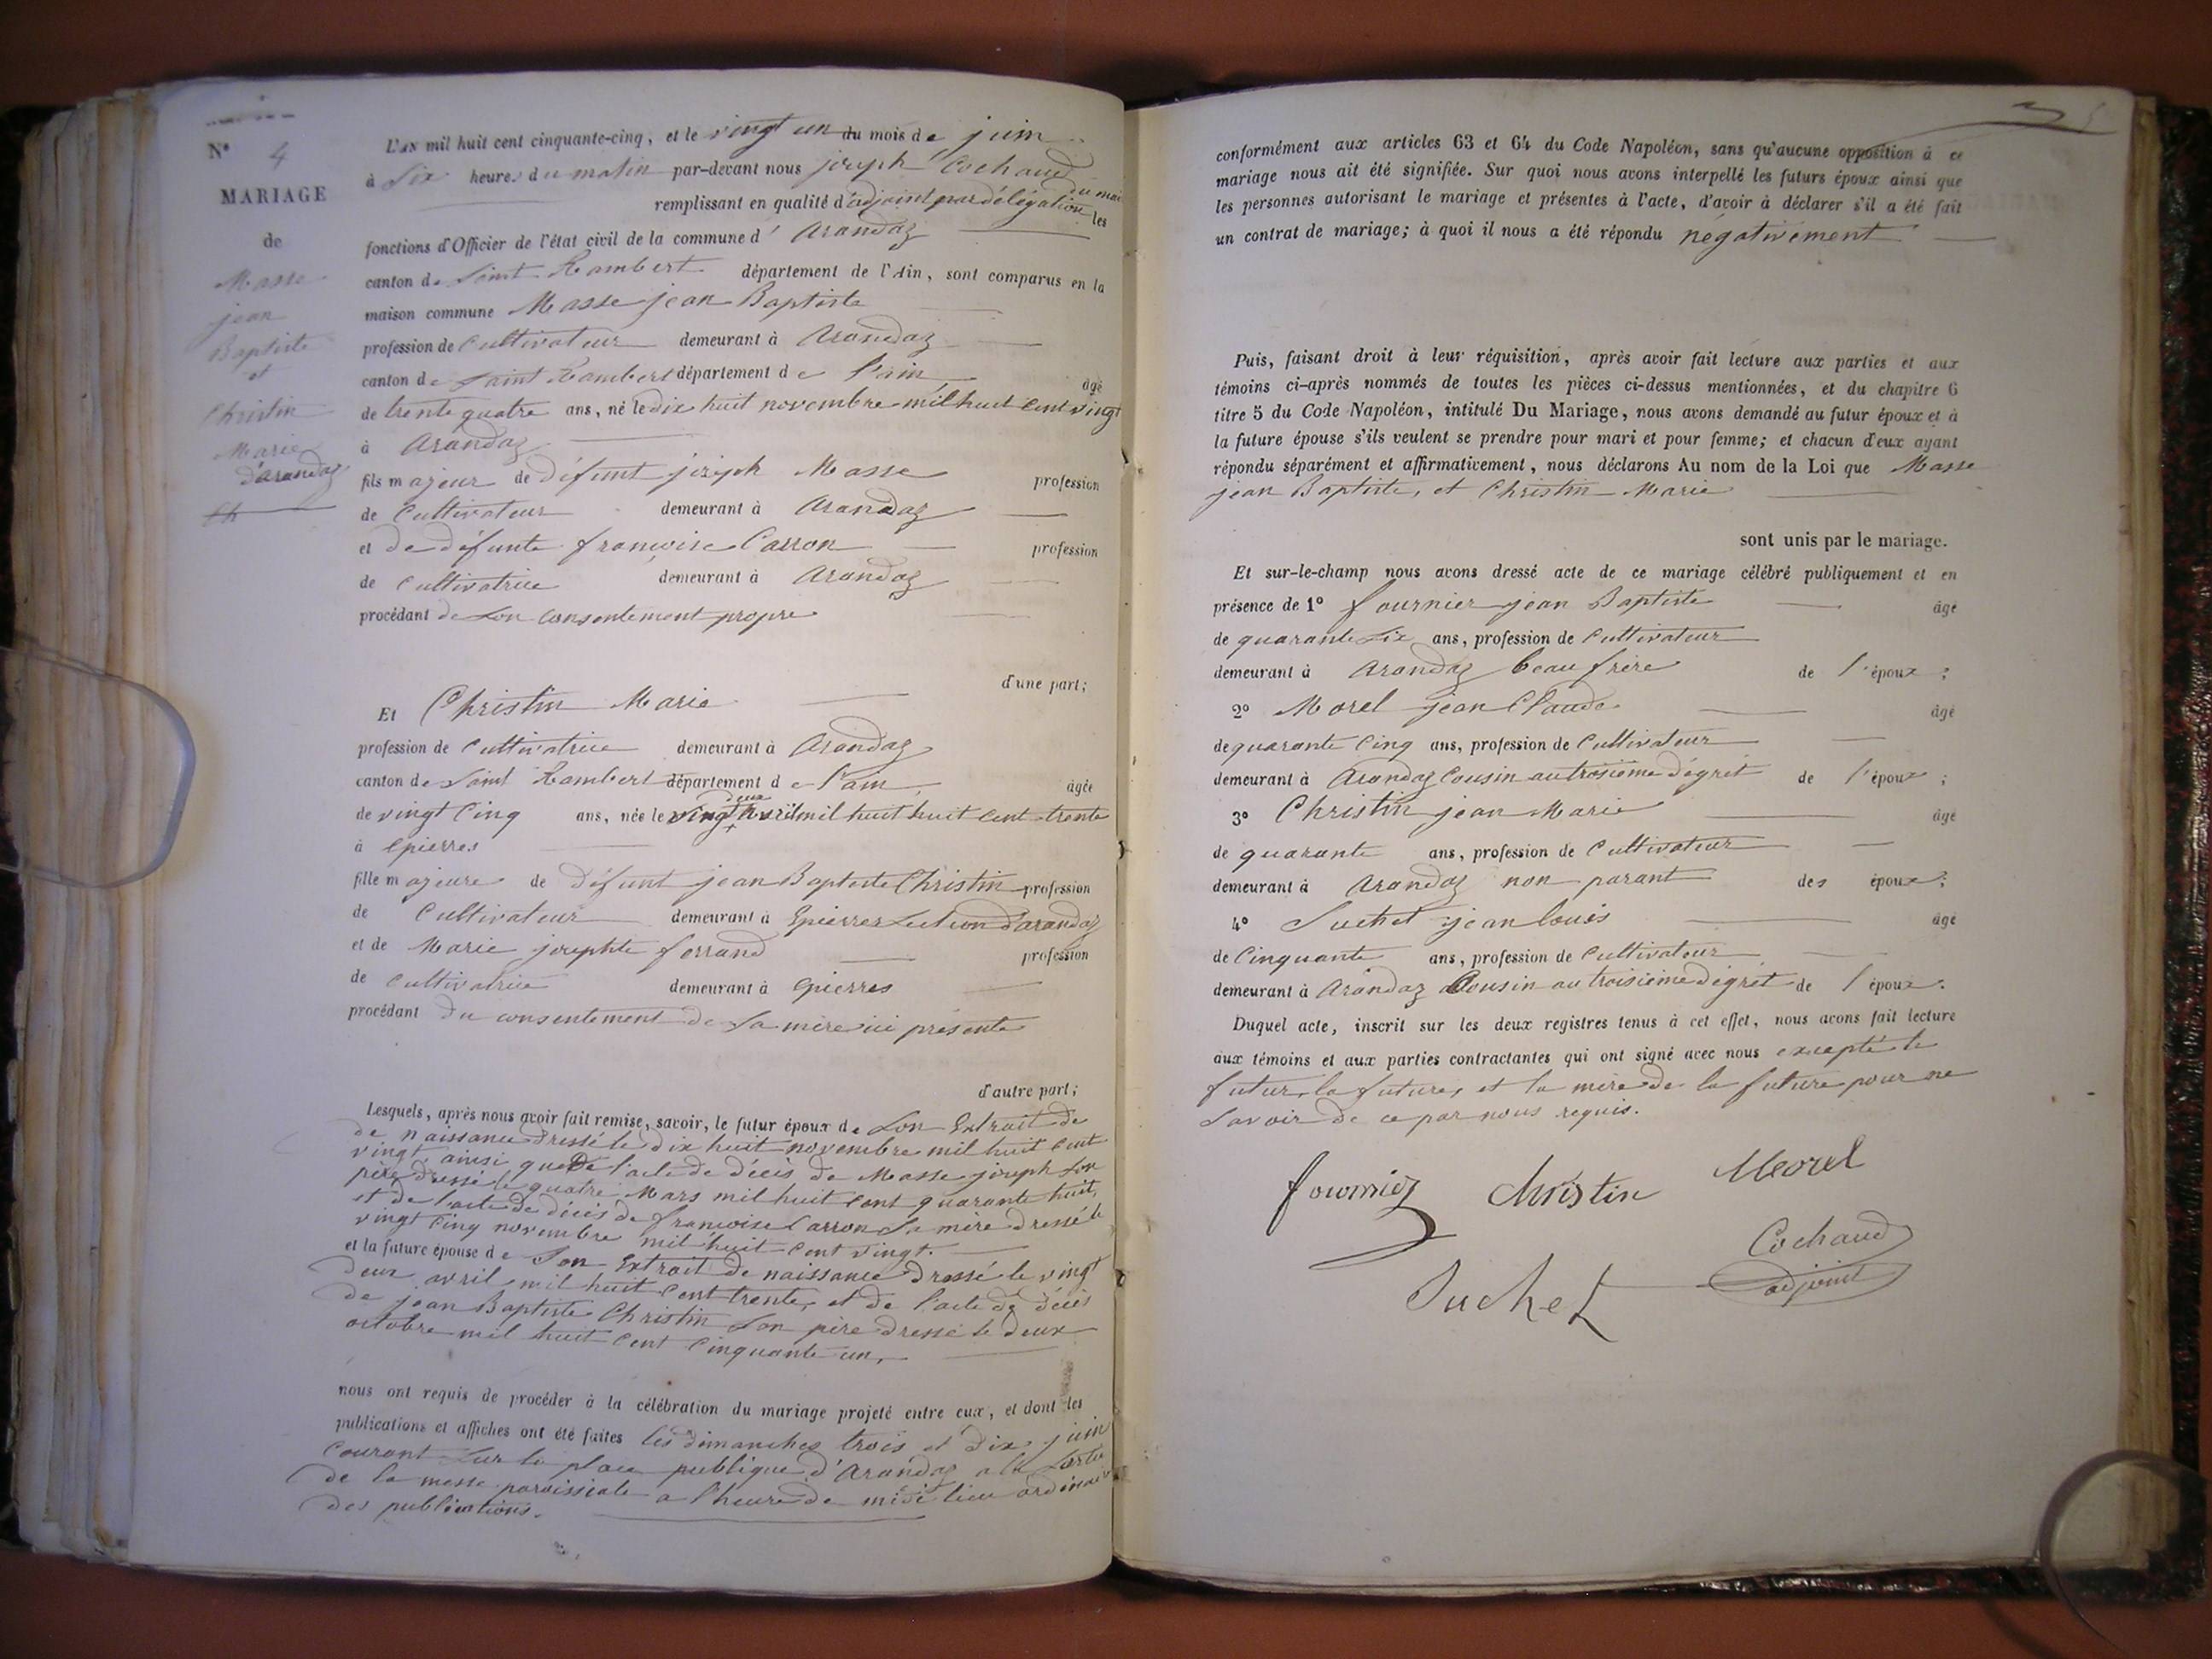 N° 4
MARIAGE
de
Masse
jean
Baptiste
et
Christin
Marie
d'arandaz
L'AN mil huit cent cinquante-cinq, et le vingt un du mois de juin
à Six heures du matin par-devant nous joseph Cochaud
remplissant en qualité d'adjoint par délégation du mai les
fonctions d'Officier de l'état civil de la commune d' Arandaz
canton de Saint Rambert département de l'Ain, sont comparus en la
maison commune Masse jean Baptiste
profession de Cultivateur demeurant à Arandaz
canton de Saint Rambert département de l'ain âgé
de trente quatre ans, né le dix huit novembre mil huit Cent vingt
à Arandaz
fils majeur de défunt joseph Masse profession
de Cultivateur demeurant à Arandaz
et de défunte francoise Carron profession
de Cultivatrice demeurant à Arandaz
procédant de Son consentement propre
d'une part;
Et Christin Marie
profession de Cultivatrice demeurant à Arandaz
canton de Saint Rambert département de l'ain âgée
de vingt Cinq ans, née le vingt deux Avril mil huit huit Cent trente
à Epierres
fille majeure de Défunt jean Baptiste Christin profession
de Cultivateur demeurant à Epierres Section d'arandaz
et de Marie josephte ferrand profession
de Cultivatrice demeurant à Epierres
procédant du consentement de Sa mère ici présente
d'autre part;
Lesquels, après nous avoir fait remise, savoir, le futur époux de Son Extrait de
de naissance dressé le dix huit novembre mil huit Cent
vingt ainsi que de l'acte de décès de Masse joseph Son
père dressé le quatre Mars mil huit Cent quarante huit,
et de l'acte de décès de francoise Carron Sa mère dressé le
vingt Cinq novembre mil huit Cent vingt.
et la future épouse de Son Extrait de naissance dressé le vingt
deux avril mil huit Cent trente, et de l'acte de décès
de jean Baptiste Christin Son père dressé le deux
octobre mil huit Cent Cinquante un,
nous ont requis de procéder à la célébration du mariage projeté entre eux, et dont les
publications et affiches ont été faites les dimanches trois et dix juin
Courant Sur la place publique d'Arandaz a la Sortie
de la messe paroissiale a l'heure de midi lieu ordinaire
des publications.
conformément aux articles 63 et 64 du Code Napoléon, sans qu'aucune opposition à ce
mariage nous ait été signifiée. Sur quoi nous avons interpellé les futurs époux ainsi que
les personnes autorisant le mariage et présentes à l'acte, d'avoir à déclarer s'il a été fait
un contrat de mariage; à quoi il nous a été répondu négativement
Puis, faisant droit à leur réquisition, après avoir fait lecture aux parties et aux
témoins ci-après nommés de toutes les pièces ci-dessus mentionnées, et du chapitre 6
titre 5 du Code Napoléon, intitulé Du Mariage, nous avons demandé au futur époux et à
la future épouse s'ils veulent se prendre pour mari et pour femme; et chacun d'eux ayant
répondu séparément et affirmativement, nous déclarons Au nom de la Loi que Masse
jean Baptiste, et Christin Marie
sont unis par le mariage.
Et sur-le-champ nous avons dressé acte de ce mariage célébré publiquement et en
présence de 1° fournier jean Baptiste âgé
de quarante Six ans, profession de Cultivateur
demeurant à Arandaz beau frère de l'époux;
2° Morel jean Claude âgé
de quarante Cinq ans, profession de Cultivateur
demeurant à Arandaz Cousin au troisième dégrét de l'époux;
3° Christin jean Marie âgé
de quarante ans, profession de Cultivateur
demeurant à Arandaz non parant des époux;
4° Suchet jean louis âgé
de Cinquante ans, profession de Cultivateur
demeurant à Arandaz Cousin au troisième dégrét de l'époux.
Duquel acte, inscrit sur les deux registres tenus à cet effet, nous avons fait lecture
aux témoins et aux parties contractantes qui ont signé avec nous excepté le
futur, la future, et la mère de la future pour ne
Savoir de ce par nous requis.
fournier Christin Morel
Cochaud
Suchet adjoint